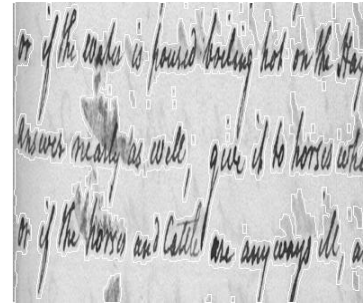 or if the water is poured boiling hot on the Hay
answer nearly as well, give it to horses whe
or if the horses and Cattle are any ways ill, a